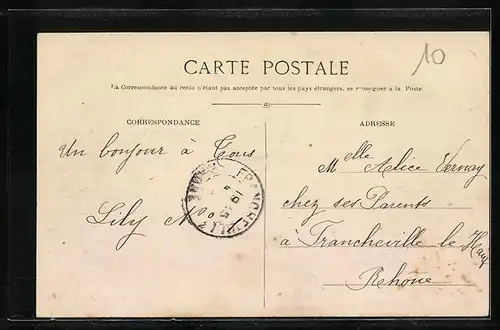 10
CARTE POSTALE
La Correspondance au recto n'étant pas acceptée par tous les pays étrangers, se renseigner à la Poste
CORRESPONDANCE
ADRESSE
Un bonjour à Tous
Lily
Melle Alice Vernay
chez ses Parents
à Francheville le Haut
Rhône
FRANCHEVILLE
RHONE